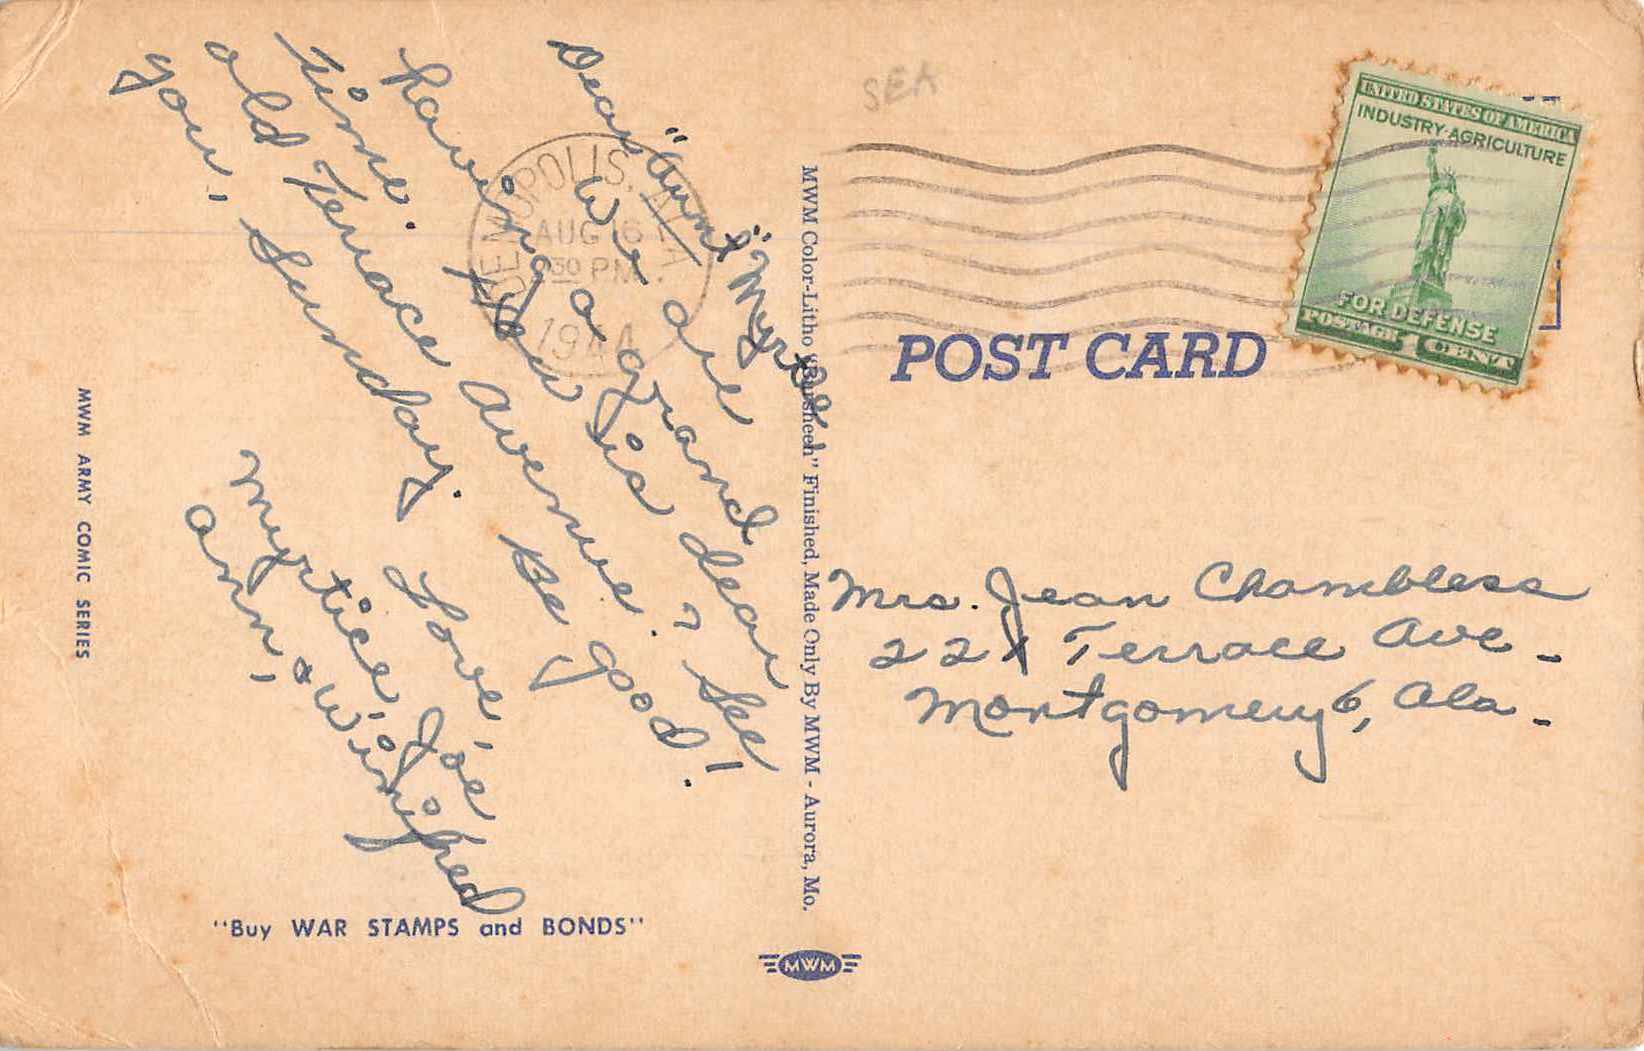 Dear "Aunt" Myrtle,
We are
having a grand
time. How is dear
old Terrace Avenue? See
you, Sunday. Be good!
Love,
Myrtice, Joe
Ann, & Winifred
"Buy WAR STAMPS and BONDS"
MWM ARMY COMIC SERIES
MWM Color-Litho "Bausheen" Finished, Made Only By MWM - Aurora, Mo.
MWM
SEA
DEMOPOLIS, ALA.
AUG 6
30 PM
1944
POST CARD
UNITED STATES OF AMERICA
INDUSTRY·AGRICULTURE
FOR DEFENSE
POSTAGE 1 CENT
Mrs. Jean Chambless
221 Terrace Ave.
Montgomery 6, Ala.